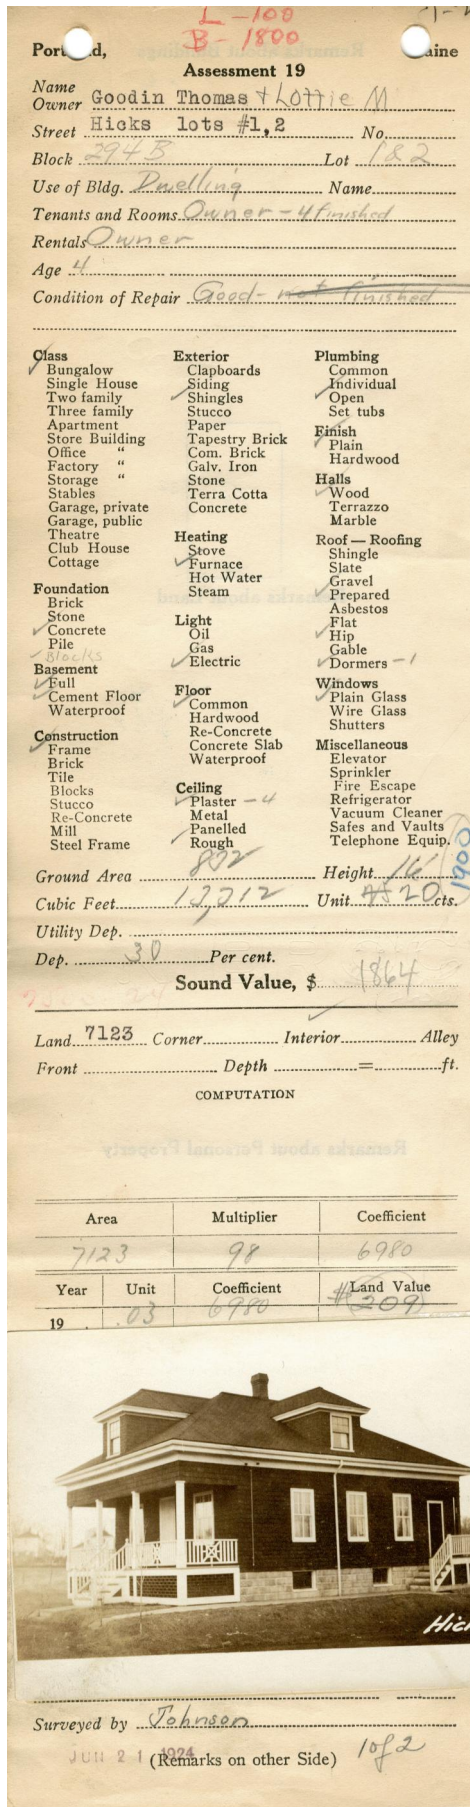 L - 100
B - 1800
Portland, Maine
Assessment 19
Name
Owner Goodin Thomas + Lottie M
Street Hicks lots #1,2 No.
Block 294 B Lot 1 & 2
Use of Bldg. Dwelling Name
Tenants and Rooms Owner - 4 finished
Rentals Owner
Age 4
Condition of Repair Good - not finished
Class
Bungalow
Single House
Two family
Three family
Apartment
Store Building
Office "
Factory "
Storage "
Stables
Garage, private
Garage, public
Theatre
Club House
Cottage
Foundation
Brick
Stone
Concrete
Pile
Blocks
Basement
Full
Cement Floor
Waterproof
Construction
Frame
Brick
Tile
Blocks
Stucco
Re-Concrete
Mill
Steel Frame
Exterior
Clapboards
Siding
Shingles
Stucco
Paper
Tapestry Brick
Com. Brick
Galv. Iron
Stone
Terra Cotta
Concrete
Heating
Stove
Furnace
Hot Water
Steam
Light
Oil
Gas
Electric
Floor
Common
Hardwood
Re-Concrete
Concrete Slab
Waterproof
Ceiling
Plaster - 4
Metal
Panelled
Rough
Plumbing
Common
Individual
Open
Set tubs
Finish
Plain
Hardwood
Halls
Wood
Terrazzo
Marble
Roof — Roofing
Shingle
Slate
Gravel
Prepared
Asbestos
Flat
Hip
Gable
Dormers - 1
Windows
Plain Glass
Wire Glass
Shutters
Miscellaneous
Elevator
Sprinkler
Fire Escape
Refrigerator
Vacuum Cleaner
Safes and Vaults
Telephone Equip.
1900
Ground Area 832 Height 16
Cubic Feet 13,312 Unit 20 cts.
Utility Dep.
Dep. 30 Per cent.
Sound Value, $ 1864
Land 7123 Corner Interior Alley
Front Depth = ft.
COMPUTATION
Area Multiplier Coefficient
7123 98 6980
Year Unit Coefficient Land Value
19 .03 6980 $209
Hic
Surveyed by Johnson
JUN 21 1924
(Remarks on other Side) 1 of 2